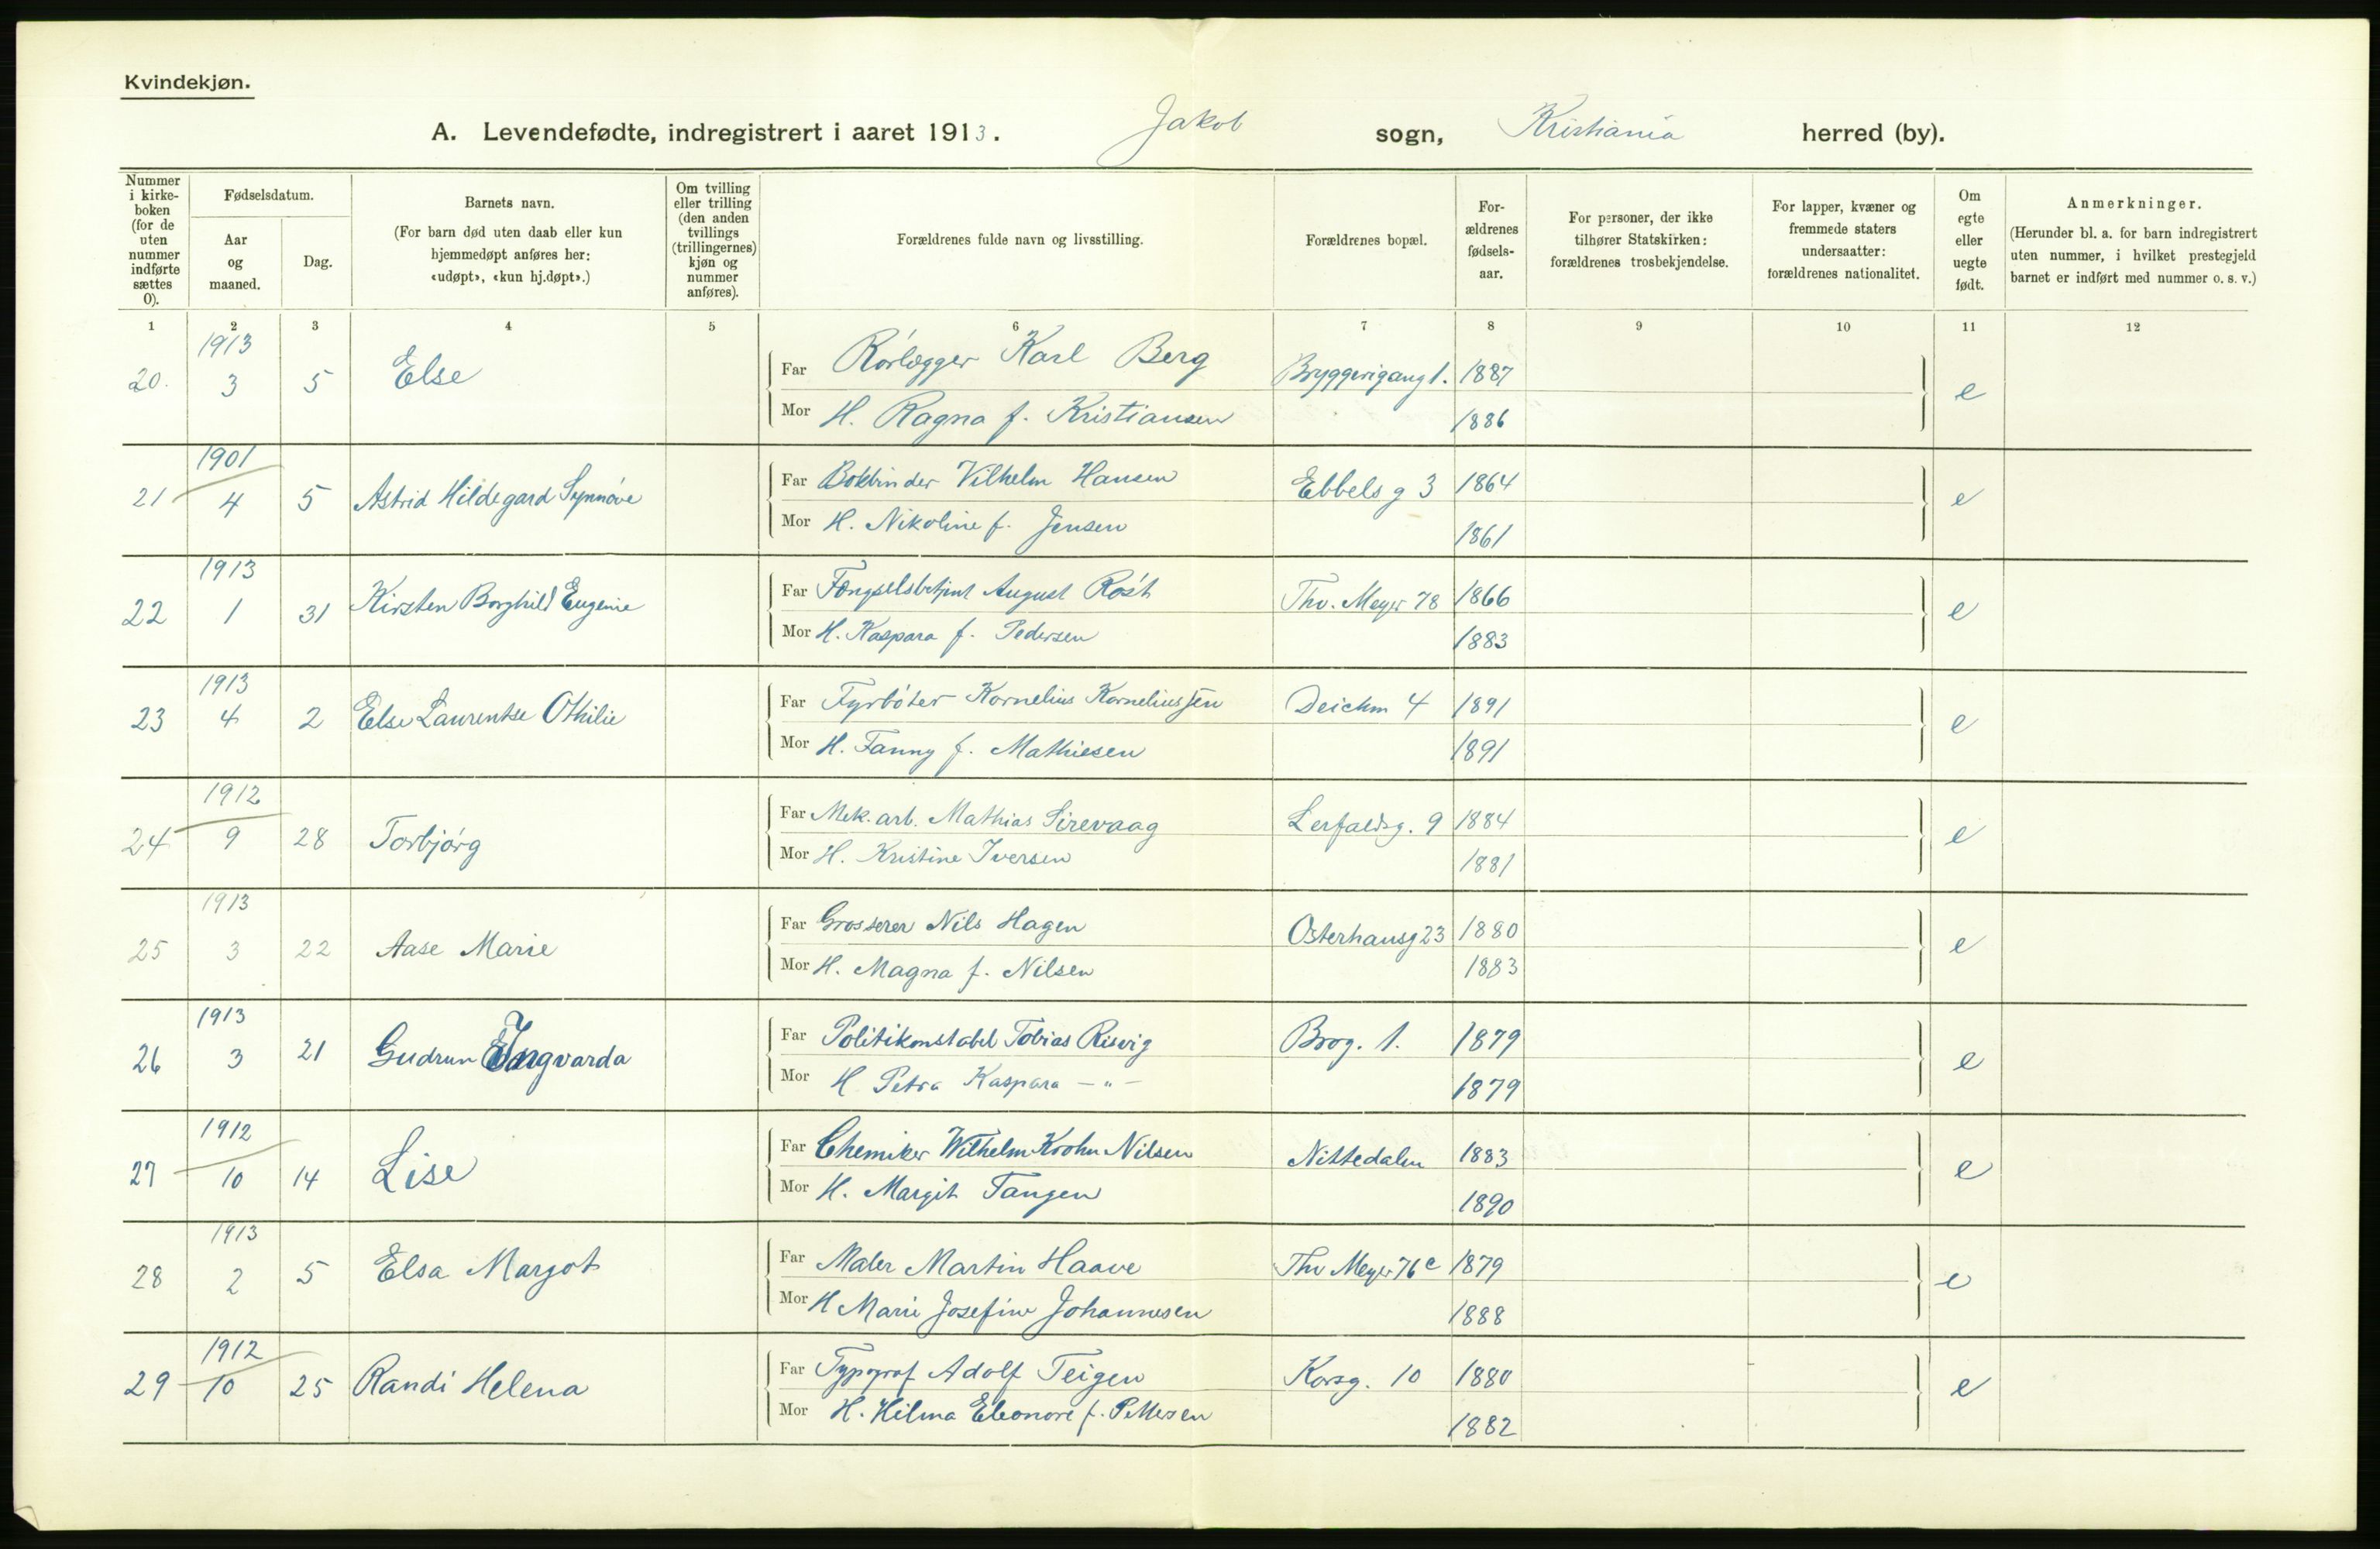 Kvindekjøn.
A. Levendefødte, indregistrert i aaret 1913. Jakob sogn, Kristiania herred (by).
Nummer i kirke-boken (for de uten nummer indførte sættes 0).
Fødselsdatum.
Aar og maaned.
Dag.
Barnets navn.
(For barn død uten daab eller kun hjemmedøpt anføres her: «udøpt», «kun hj.døpt».)
Om tvilling eller trilling (den anden tvillings (trillingernes) kjøn og nummer anføres).
Forældrenes fulde navn og livsstilling.
Forældrenes bopæl.
For-ældrenes fødsels-aar.
For personer, der ikke tilhører Statskirken: forældrenes trosbekjendelse.
For lapper, kvæner og fremmede staters undersaatter: forældrenes nationalitet.
Om egte eller uegte født.
Anmerkninger.
(Herunder bl. a. for barn indregistrert uten nummer, i hvilket prestegjeld barnet er indført med nummer o. s. v.)
1 2 3 4 5 6 7 8 9 10 11 12
1913
20. 3 5 Else Far Rørlægger Karl Berg Bryggerigang 1. 1887 e
Mor H. Ragna f. Kristiansen 1886
1901
21 4 5 Astrid Hildegard Synnøve Far Bokbinder Vilhelm Hansen Ebbels g 3 1864 e
Mor H. Nikoline f. Jensen 1861
1913
22 1 31 Kirsten Borghild Eugenie Far Fængselsbetjent August Røst Thv. Meyer 78 1866 e
Mor H. Kaspara f. Pedersen 1883
1913
23 4 2 Else Laurentse Othilie Far Fyrbøter Kornelius Korneliussen Deichm 4 1891 e
Mor H. Fanny f. Mathiesen 1891
1912
24 9 28 Torbjørg Far Mek. arb. Mathias Sirevaag Lerfaldsg. 9 1884 e
Mor H. Kristine Iversen 1881
1913
25 3 22 Aase Marie Far Grosserer Nils Hagen Osterhausg 23 1880 e
Mor H. Magna f. Nilsen 1883
1913
26 3 21 Gudrun Ingvarda Far Politikonstabel Tobias Risvig Brog. 1. 1879 e
Mor H Petra Kaspara - " - 1879
1912
27 10 14 Lise Far Chemiker Wilhelm Krohn Nilsen Nittedalen 1883 e
Mor H. Margit Tangen 1890
1913
28 2 5 Elsa Margot Far Maler Martin Haave Thv Meyer 76 c 1879 e
Mor H Marie Josefine Johannesen 1888
1912
29 10 25 Randi Helena Far Typograf Adolf Teigen Korsg. 10 1880 e
Mor H. Hilma Eleonore f. Pettersen 1882